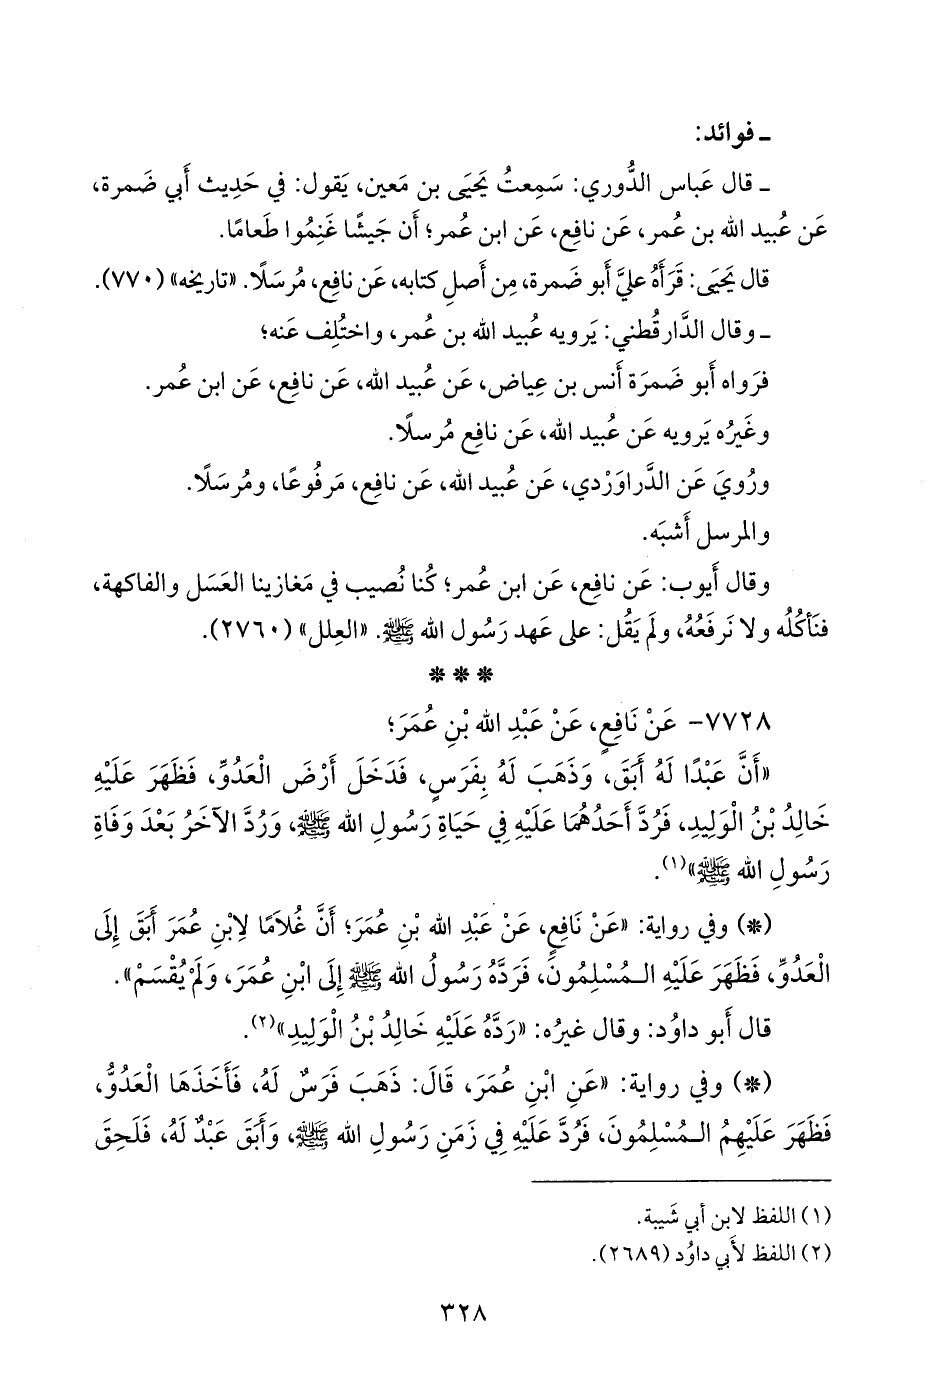 ـ فوائد:
ـ قال عَباس الدُّوري: سَمِعتُ يَحيَى بن مَعين، يَقول: في حَدِيث أَبي ضَمرة،
عَن عُبيد الله بن عُمر، عَن نافِع، عَن ابن عُمر؛ أَن جَيشًا غَنِمُوا طَعامًا.
قال يَحيَى: قَرَأَهُ عليَّ أَبو ضَمرة، مِن أَصل كتابه، عَن نافِع، مُرسَلًا. «تاريخه» (٧٧٠).
ـ وقال الدَّارقُطني: يَرويه عُبيد الله بن عُمر، واختُلِف عَنه؛
فرَواه أَبو ضَمرَة أَنس بن عِياض، عَن عُبيد الله، عَن نافِع، عَن ابن عُمر.
وغَيرُه يَرويه عَن عُبيد الله، عَن نافِع مُرسلًا.
ورُويَ عَن الدَّراوَرْدي، عَن عُبيد الله، عَن نافِع، مَرفُوعًا، ومُرسَلًا.
والمرسل أَشبَه.
وقال أَيوب: عَن نافِع، عَن ابن عُمر؛ كُنا نُصيب في مَغازينا العَسَل والفاكهة،
فنَأكُلُه ولا نَرفَعُهُ، ولَم يَقُل: على عَهد رَسُول الله ﷺ. «العِلل» (٢٧٦٠).
* * *
٧٧٢٨- عَنْ نَافِعٍ، عَنْ عَبْدِ الله بْنِ عُمَرَ؛
«أَنَّ عَبْدًا لَهُ أَبَقَ، وَذَهَبَ لَهُ بِفَرَسٍ، فَدَخَلَ أَرْضَ الْعَدُوِّ، فَظَهَرَ عَلَيْهِ
خَالِدُ بْنُ الْوَلِيدِ، فَرُدَّ أَحَدُهُمَا عَلَيْهِ فِي حَيَاةِ رَسُولِ الله ﷺ، وَرُدَّ الآخَرُ بَعْدَ وَفَاةِ
رَسُولِ الله ﷺ»(١).
(*) وفي رواية: «عَنْ نَافِعٍ، عَنْ عَبْدِ الله بْنِ عُمَرَ؛ أَنَّ غُلاَمًا لاِبْنِ عُمَرَ أَبَقَ إِلَى
الْعَدُوِّ، فَظَهَرَ عَلَيْهِ الـمُسْلِمُونَ، فَرَدَّهُ رَسُولُ الله ﷺ إِلَى ابْنِ عُمَرَ، وَلَمْ يُقْسَمْ».
قال أَبو داوُد: وقال غيرُه: «رَدَّهُ عَلَيْهِ خَالِدُ بْنُ الْوَلِيدِ»(٢).
(*) وفي رواية: «عَنِ ابْنِ عُمَرَ، قَالَ: ذَهَبَ فَرَسٌ لَهُ، فَأَخَذَهَا الْعَدُوُّ،
فَظَهَرَ عَلَيْهِمُ الـمُسْلِمُونَ، فَرُدَّ عَلَيْهِ فِي زَمَنِ رَسُولِ الله ﷺ، وَأَبَقَ عَبْدٌ لَهُ، فَلَحِقَ
(١) اللفظ لابن أبي شَيبة.
(٢) اللفظ لأَبي داوُد (٢٦٨٩).
٣٢٨